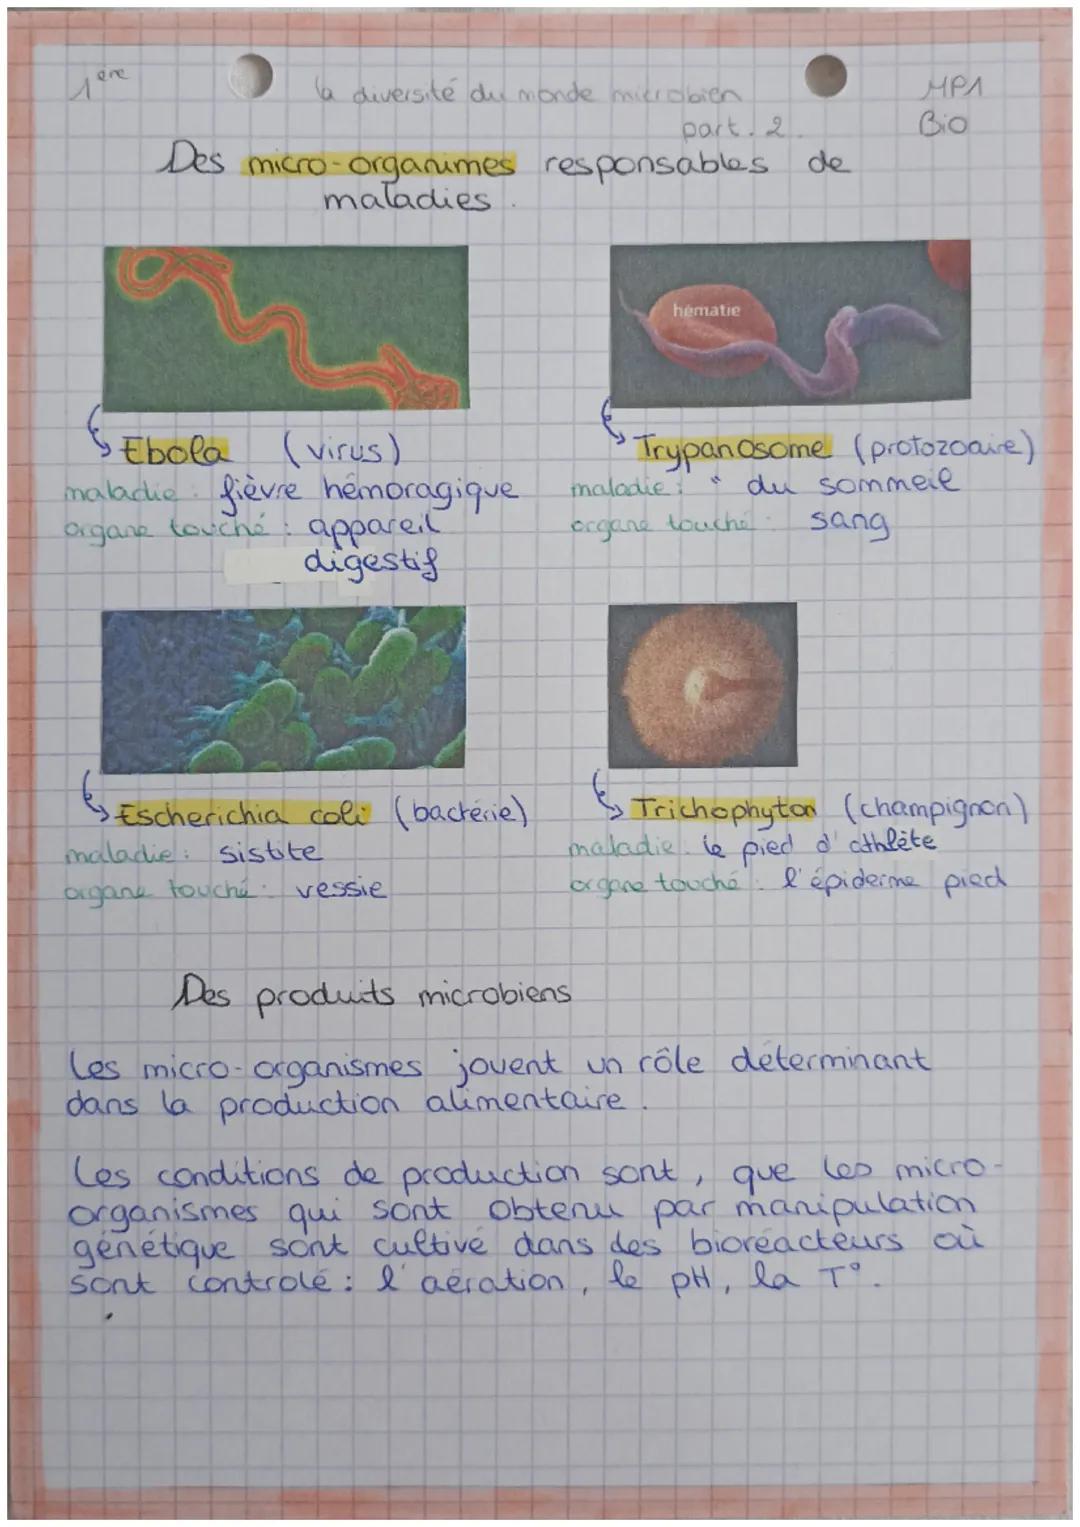 1ère
la diversité du monde microbien
MP1
part. 2.
Bio
Des micro-organimes responsables de
maladies.
hématie
Ebola (virus)
maladie : fièvre hémoragique
organe touché : appareil
digestif
Trypanosome (protozoaire)
maladie : " du sommeil
organe touché : sang
Escherichia coli (bactérie)
maladie : sistite
organe touché : vessie
Trichophyton (champignon)
maladie : le pied d'athlète
organe touché : l'épiderme pied
Des produits microbiens
Les micro-organismes jouent un rôle déterminant
dans la production alimentaire.
Les conditions de production sont, que les micro-
organismes qui sont obtenu par manipulation
génétique sont cultivé dans des bioréacteurs où
sont controlé : l'aération, le pH, la T°.